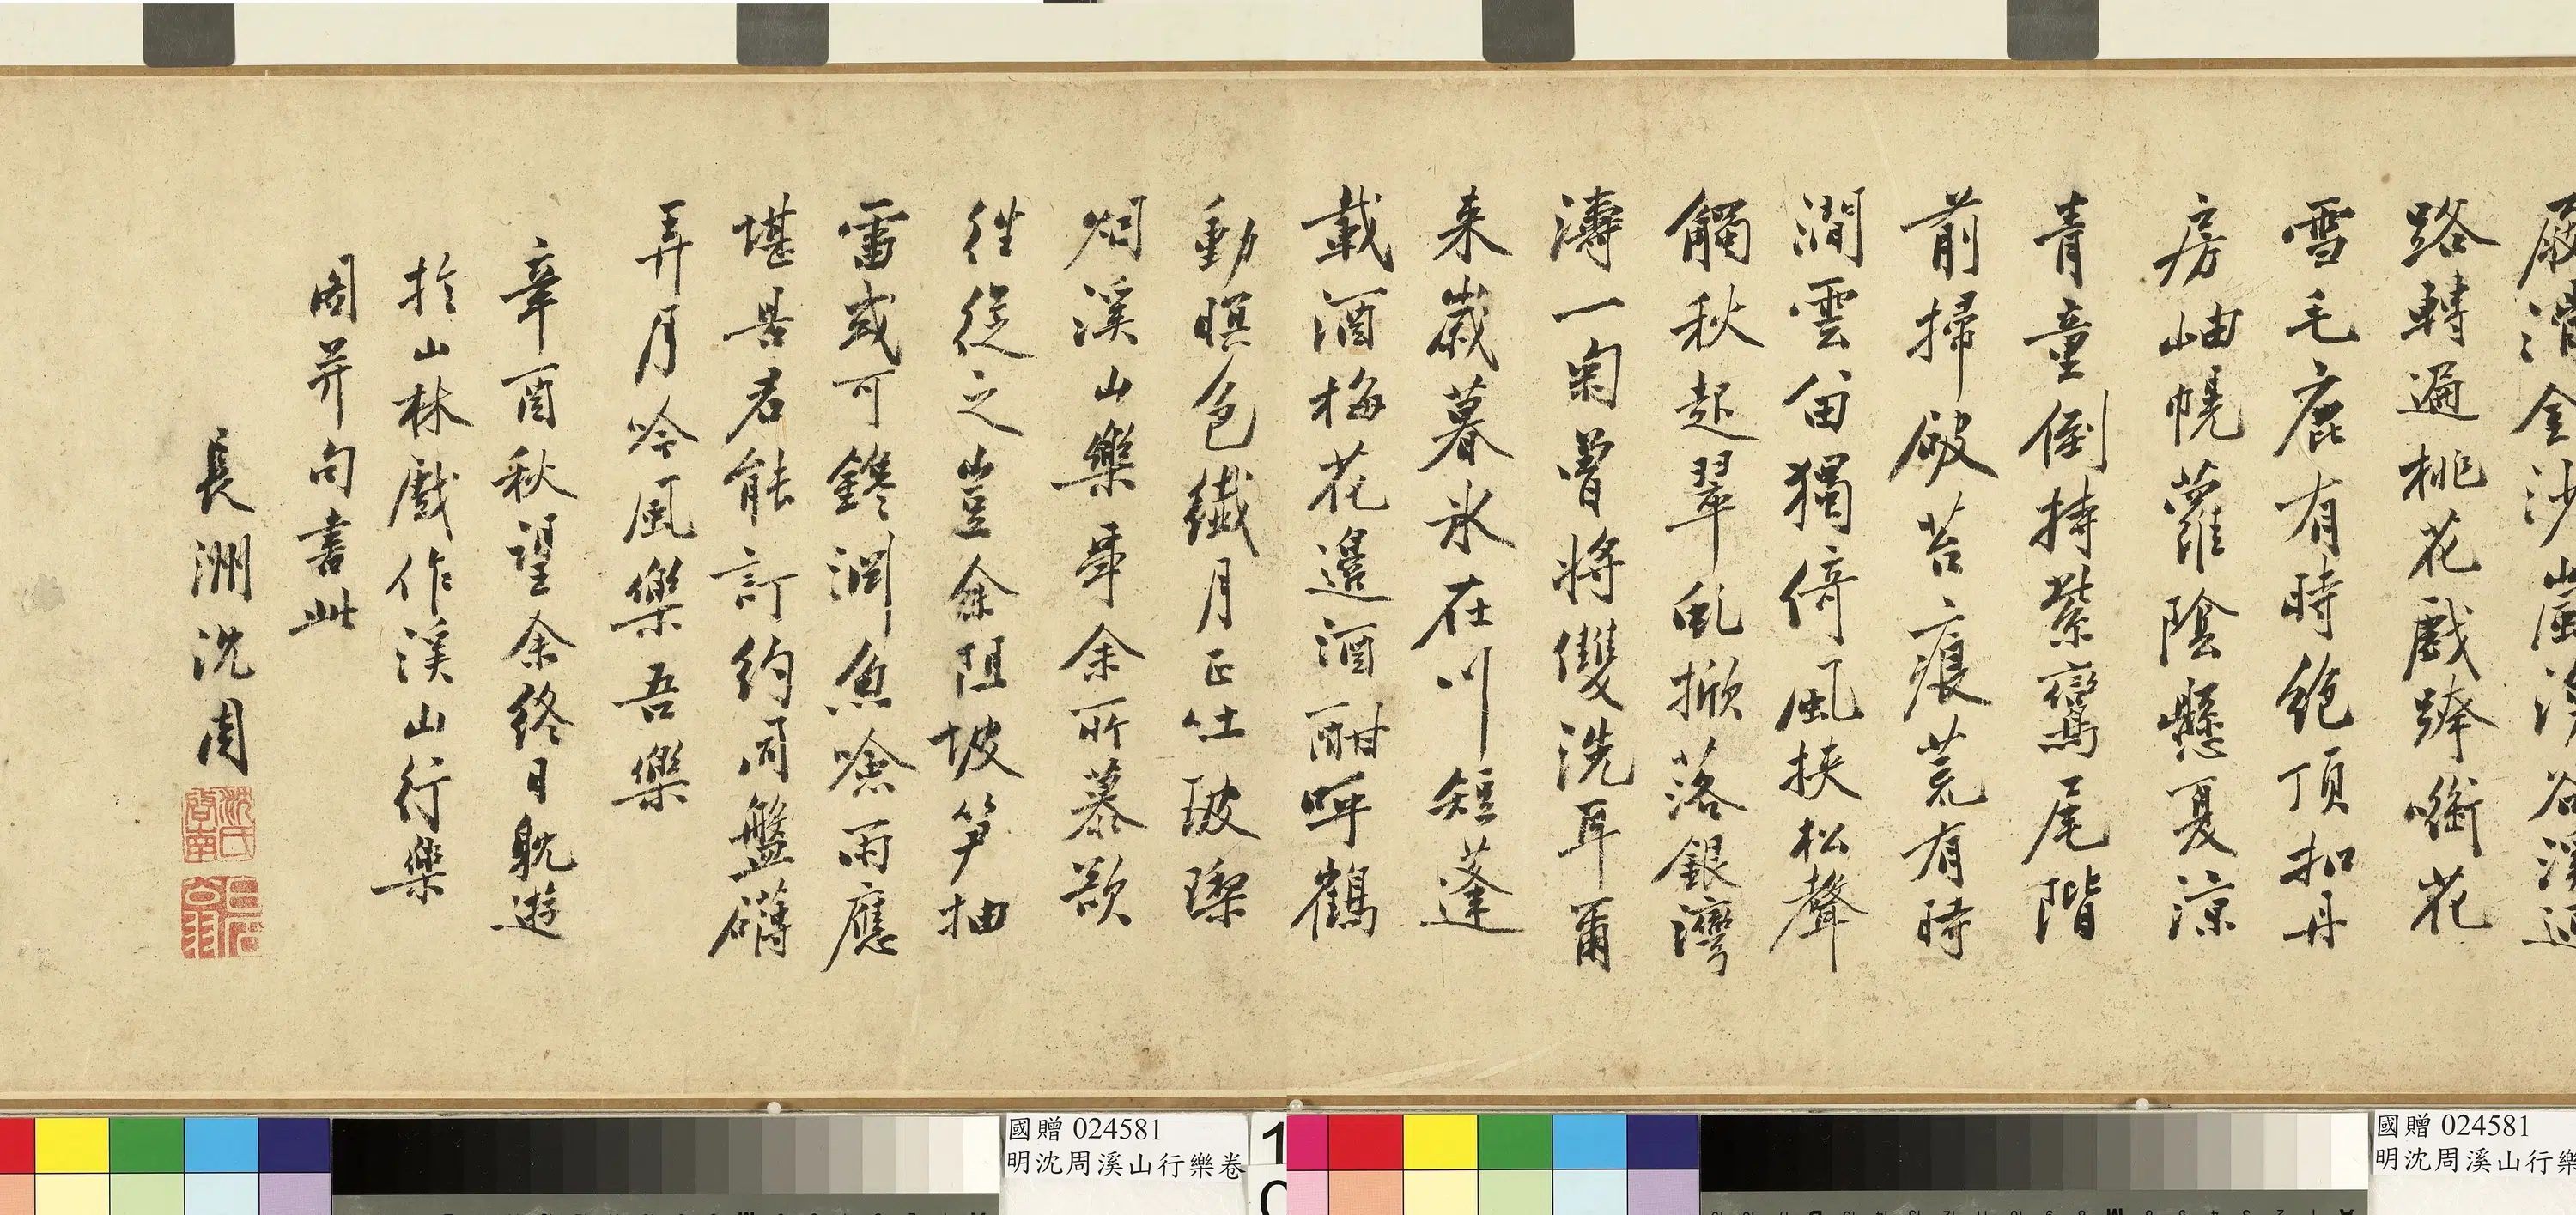 屐滑金沙
路轉遍桃花戲蹄嚙花
雪毛鹿有時絕頂扣丹
房岫幌蘿陰懸夏涼
青童倒持紫鸞尾階
前掃破苔痕荒有時
澗雲留獨倚風挾松聲
觸秋起翠亂掀落銀灣
濤一匊曾將雙洗耳爾
来歲暮氷在川短蓬
載酒梅花邊酒酣呼鶴
動暝色纖月正吐玻瓈
烟溪山樂事余所慕欲
往從之豈余阻坡笋抽
雷或可鑱澗魚噞雨應
堪罟君能訂約同盤礴
弄月吟風樂吾樂
辛酉秋望余終日躭遊
於山林戲作溪山行樂
圖并句書此
長洲沈周
沈氏啓南
石
國贈 024581
明沈周溪山行樂卷
國贈 024581
明沈周溪山行樂